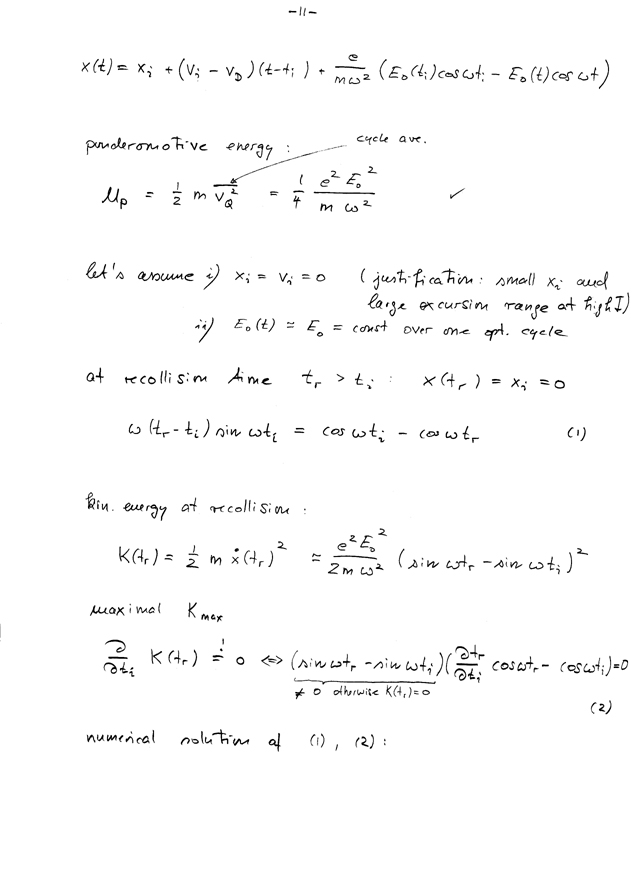 -11-
x(t) = x_i + (v_i - v_D)(t-t_i) + e/(mω²) (E_0(t_i) cos ωt_i - E_0(t) cos ωt)
ponderomotive energy: cycle ave.
U_p = 1/2 m \overline{v_Q²} = 1/4 e² E_0²/(m ω²) ✓
let's assume i) x_i = v_i = 0 (justification: small x_i and
large excursion range at high I)
ii) E_0(t) ≃ E_0 = const over one opt. cycle
at recollision time t_r > t_i : x(t_r) = x_i = 0
ω(t_r - t_i) sin ωt_i = cos ωt_i - cos ωt_r (1)
kin. energy at recollision:
K(t_r) = 1/2 m ẋ(t_r)² ≃ e² E_0²/(2mω²) (sin ωt_r - sin ωt_i)²
maximal K_max
∂/∂t_i K(t_r) =! 0 ⇔ (sin ωt_r - sin ωt_i)(∂t_r/∂t_i cos ωt_r - cos ωt_i) = 0
≠ 0 otherwise K(t_r) = 0
(2)
numerical solution of (1), (2):